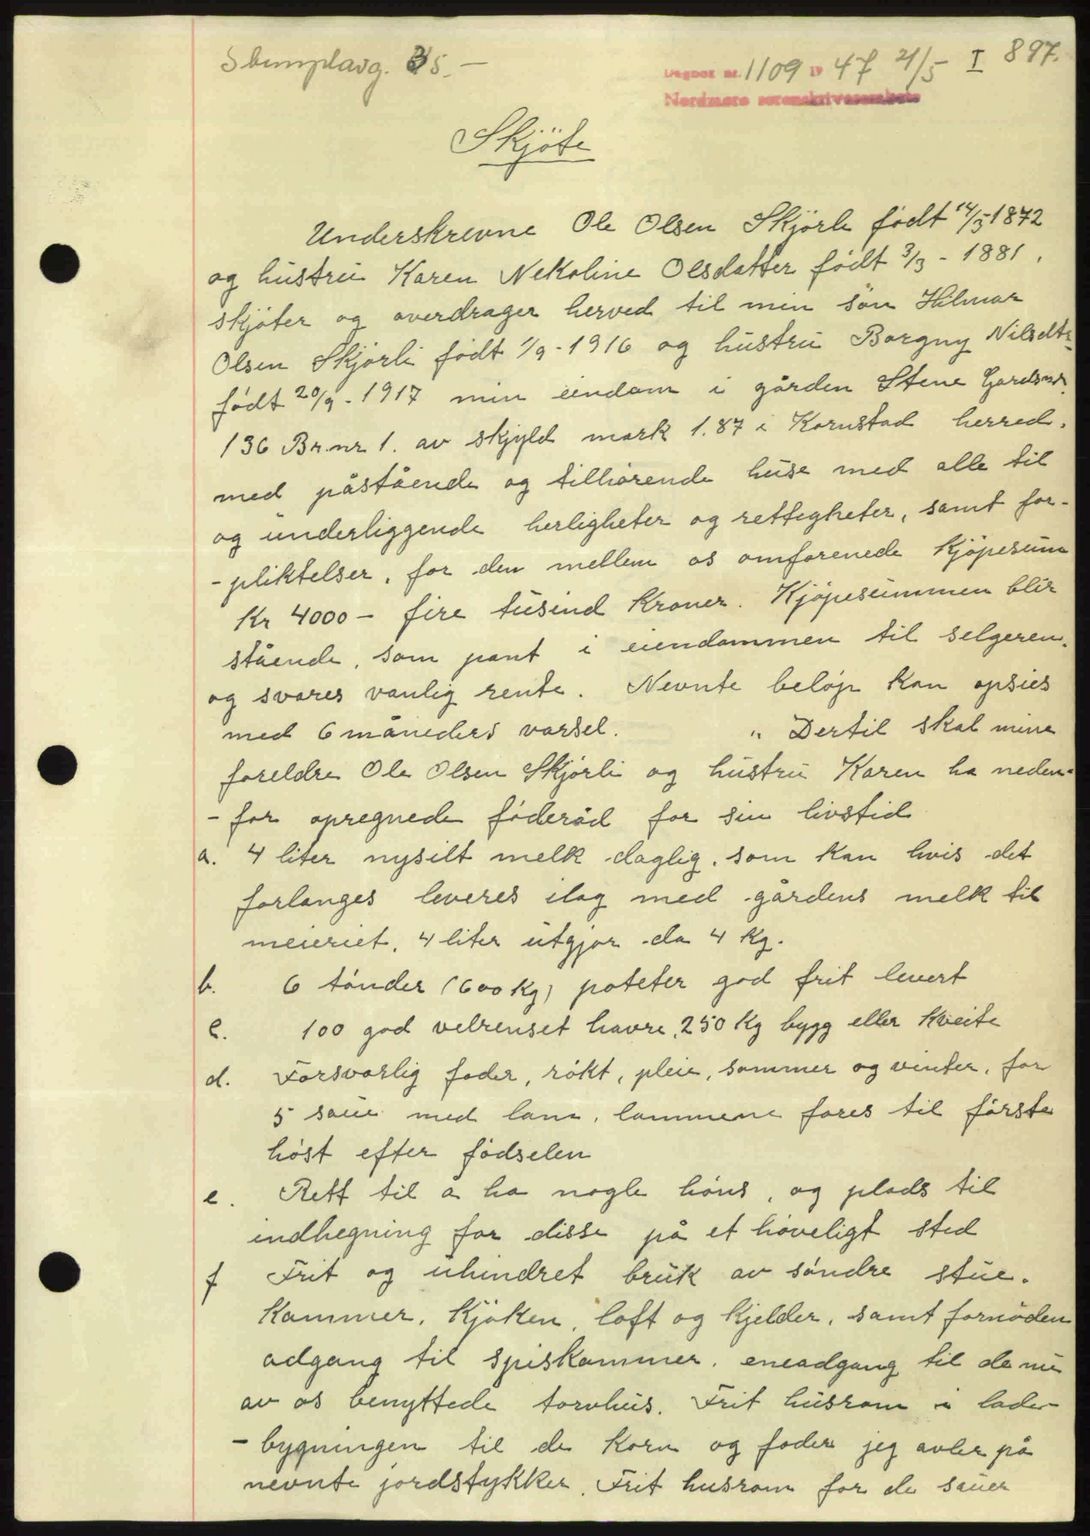 Stempelavg. 35.-
Dagbok nr. 1109 19 47 21/5 I 897.
Nordmøre sorenskriverembete
Skjöte
Underskrevne Ole Olsen Skjörli födt 14/5 1872
og hustru Karen Nekoline Olsdatter födt 3/3 - 1881,
skjöter og overdrager herved til min sön Hilmar
Olsen Skjörli födt 1/9 - 1916 og hustru Borgny Nilsdtr.
födt 20/9 - 1917 min eindom i gården Stene Gardsnr.
136 Br.nr 1. av skyld mark 1.87 i Kornstad herred.
med påstående og tilhørende huse med alle til
og underliggende herligheter og rettigheter, samt for-
-pliktelser, for den mellem os omforenede Kjöpesum
Kr 4000 - fire tusind Kroner. Kjöpesummen blir
stående, som pant i eiendommen til selgeren,
og svares vanlig rente. Nevnte belöp kan opsies
med 6 måneders varsel. " Dertil skal mine
foreldre Ole Olsen Skjörli og hustru Karen ha neden-
- for opregnede föderåd for sin livstid
a. 4 liter nysilt melk daglig, som kan hvis det
forlanges leveres ilag med gårdens melk til
meieriet, 4 liter utgjør da 4 Kg.
b. 6 tönder (600 Kg) poteter god frit levert
c. 100 god velrenset havre, 250 Kg bygg eller Kveite
d. Forsvarlig foder, rökt, pleie, sommer og vinter, for
5 saue med lam, lammene fores til förste
höst efter födselen
e. Rett til å ha nogle höns, og plads til
indhegning for disse på et høveligt sted
f Frit og uhindret bruk av söndre stue.
Kammer, Kjöken, loft og kjelder, samt fornöden
adgang til spiskammer. eneadgang til de nu
av os benyttede torvhus. Frit husrom i lade-
- bygningen til de korn og foder jeg avler på
nevnte jordstykker. Frit husrom for de sauer